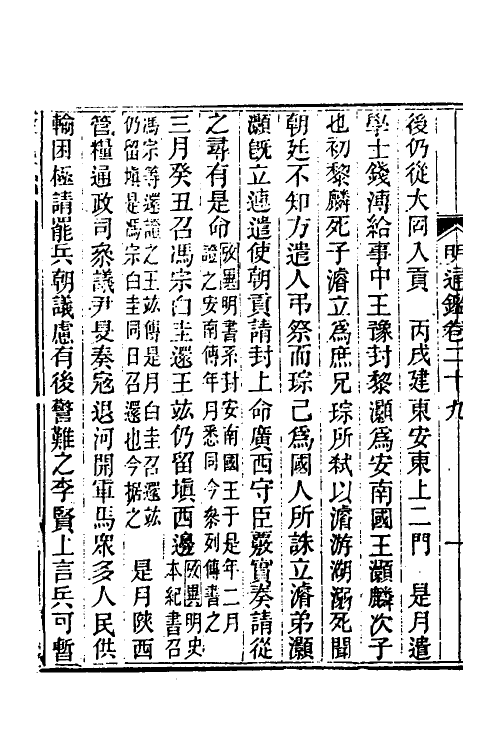 明通鑑卷二十九
一
後仍從大同入貢　丙戌建東安東上二門　是月遣
學士錢溥給事中王豫封黎灝爲安南國王灝麟次子
也初黎麟死子濬立爲庶兄琮所弒以濬游湖溺死聞
朝廷不知方遣人弔祭而琮已爲國人所誅立濬弟灝
灝旣立連遣使朝貢請封上命廣西守臣覈實奏請從
之尋有是命攷異明書系封安南國王于是年二月
證之安南傳年月悉同今叅列傳書之
三月癸丑召馮宗白圭還王竑仍留塡西邊攷異明史
本紀書召
馮宗等還證之王竑傳是月白圭召還竑
仍留塡是馮宗白圭同日召還也今據之　是月陝西
管糧通政司叅議尹旻奏寇退河開軍馬衆多人民供
輸困極請罷兵朝議慮有後警難之李賢上言兵可暫